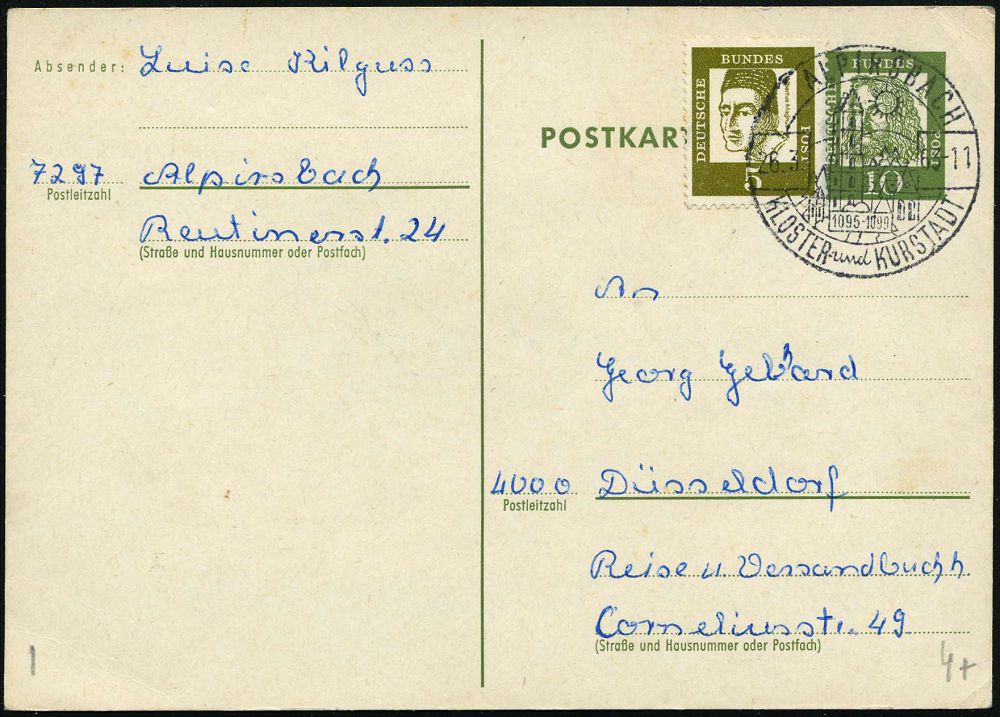 Absender: Luise Kilguss
7297 Alpirsbach
Postleitzahl
Reutinerst. 24
(Straße und Hausnummer oder Postfach)
POSTKAR
DEUTSCHE BUNDES POST
5
DEUTSCHE BUNDES POST
10
ALPIRSBACH
26.3
-11
1095-1099
KLOSTER-und KURSTADT
An
Georg Gebhard
4000 Düsseldorf
Postleitzahl
Reise u. Versandbuchh.
Corneliusstr. 49
(Straße und Hausnummer oder Postfach)
1
4+